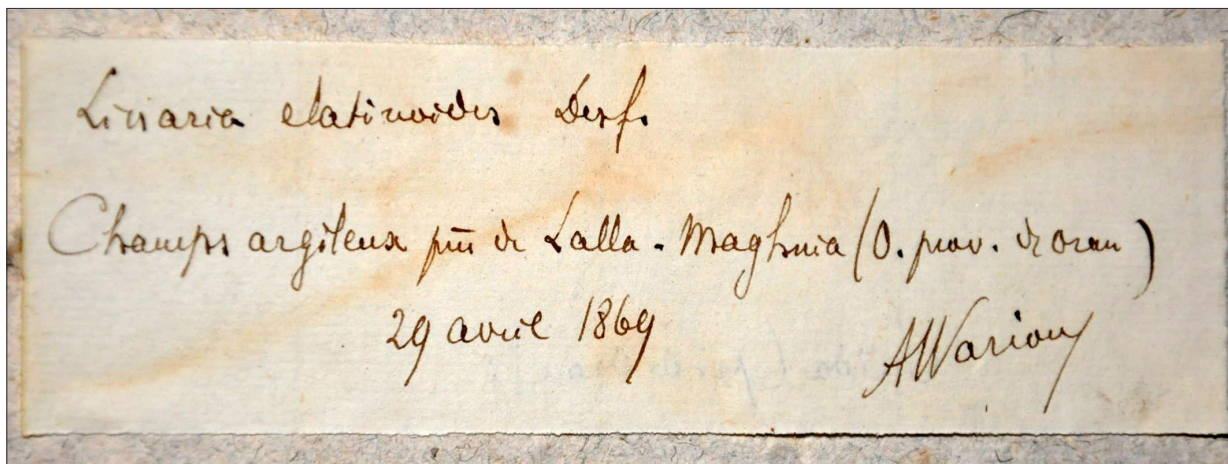 Linaria elatinoides Desf.
Champs argileux près de Lalla-Maghnia (O. prov. d'Oran)
29 avril 1869
AWarion